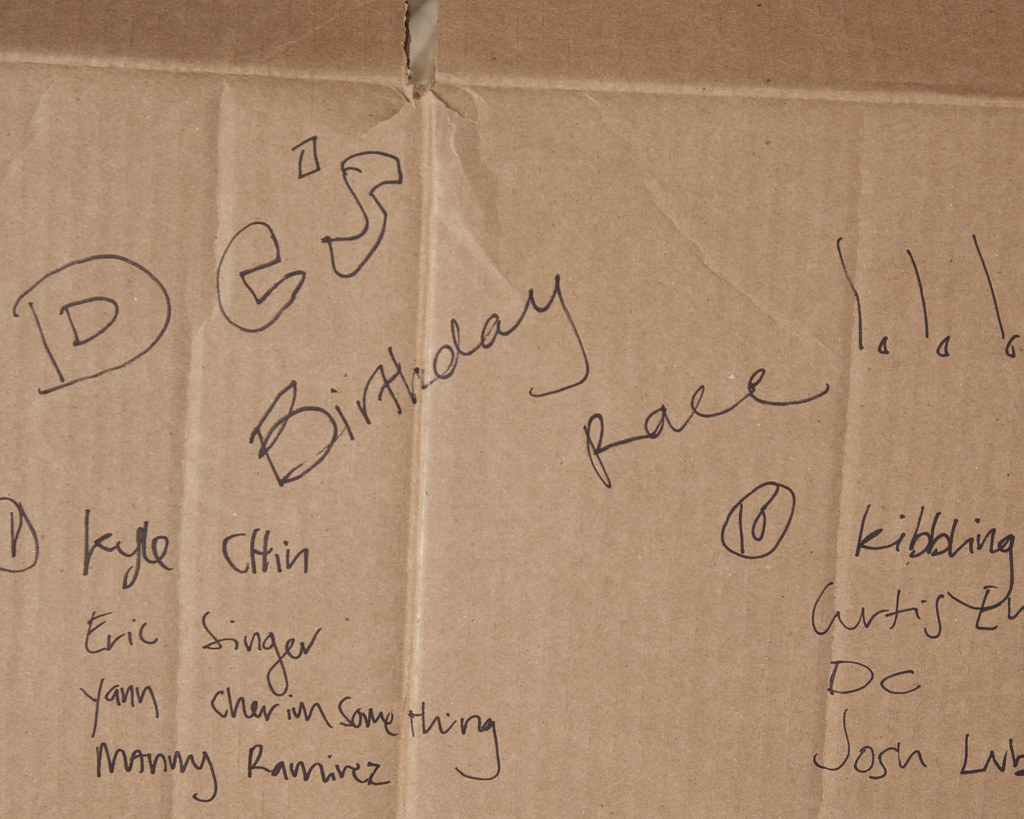 DC's
Birthday
Race
! ! !
1 Kyle CHin
Eric Singer
Yann Cherimsomething
Manny Ramirez
10 Kibbling
Curtis
DC
Josh Lub